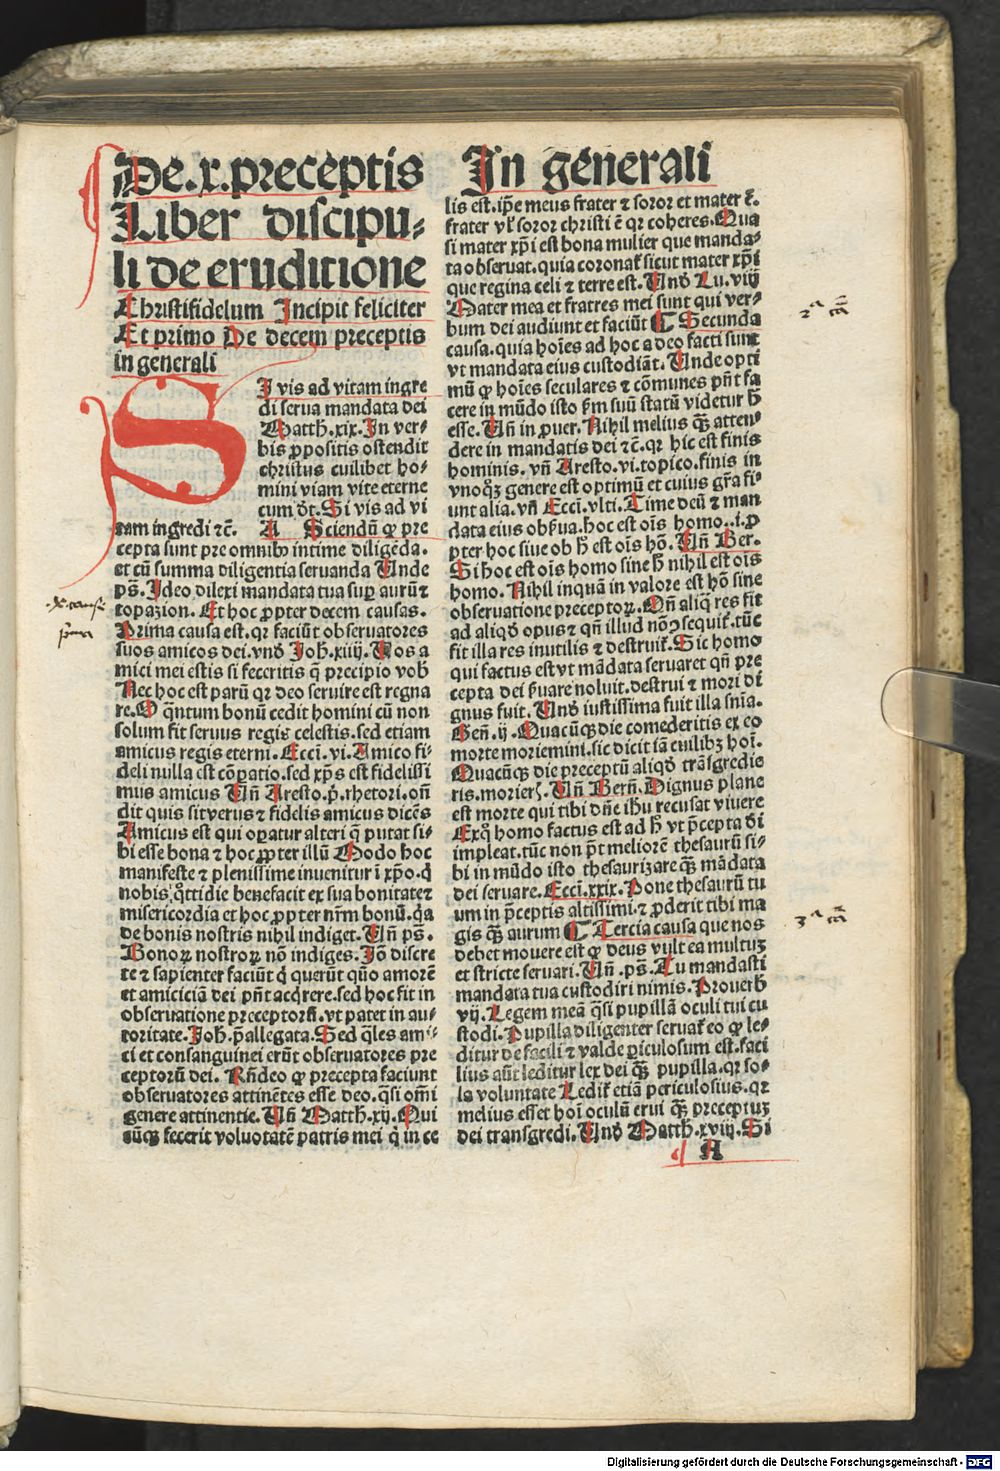 De.x.preceptis
Liber discipu⸗
li de eruditione
Christifidelum Incipit feliciter
Et primo De decem preceptis
in generali
SI vis ad vitam ingre
di serua mandata dei
Matth.xix.In ver⸗
bis ꝓpositis ostendit
christus cuilibet ho⸗
mini viam vite eterne
cum dt̄.Si vis ad vi
tam ingredi ⁊c̄. A Sciendū ꝙ pre
cepta sunt pre omnibꝰ intime diligēda.
et cū summa diligentia seruanda Unde
ps̄.Ideo dilexi mandata tua suꝑ aurū ⁊
topazion. Et hoc ꝓpter decem causas.
Prima causa est.qꝛ faciūt obseruatores
suos amicos dei.vnd̄ Joh̄.xiiij.Uos a
mici mei estis si feceritis q̄ precipio vob̄
Nec hoc est parū qꝛ deo seruire est regna
re.O q̄ntum bonū cedit homini cū non
solum fit seruus regis celestis.sed etiam
amicus regis eterni.Ecci.vi.Amico fi⸗
deli nulla est cōꝑatio.sed xp̄s est fidelissi
mus amicus Un̄ Aresto.p̄.rhetori.on̄
dit quis sit verus ⁊ fidelis amicus dicēs
Amicus est qui oꝑatur alteri q̄ putat si⸗
bi esse bona ⁊ hoc ꝓpter illū Modo hoc
manifeste ⁊ plenissime inuenitur ī xp̄o.q̇
nobis q̇ttidie benefacit ex sua bonitate ⁊
misericordia et hoc ꝓpter nr̄m bonū.q̇a
de bonis nostris nihil indiget.Un̄ ps̄.
Bonoꝝ nostroꝝ nō indiges.Iō discre
te ⁊ sapienter faciūt q̇ querūt quō amorē
et amiciciā dei pn̄t acq̇rere.sed hoc fit in
obseruatione preceptorū.vt patet in au⸗
toritate.Joh̄.p̄allegata.Sed q̄les ami⸗
ci et consanguinei erūt obseruatores pre
ceptorū dei. Rn̄deo ꝙ precepta faciunt
obseruatores attinētes esse deo.q̄si om̄i
genere attinentie.Un̄ Matth.xij.Qui
cūqꝫ fecerit voluntatē patris mei q̇ in ce
In generali
lis est.ip̄e meus frater ⁊ soror et mater ē.
frater vl̄ soror christi ē qꝛ coheres.Qua
si mater xp̄i est bona mulier que manda⸗
ta obseruat.quia coronat̄ sicut mater xp̄i
que regina celi ⁊ terre est.Und̄ Lu.viij
Mater mea et fratres mei sunt qui ver⸗
bum dei audiunt et faciūt ¶ Secunda
causa.quia hoīes ad hoc a deo facti sunt
vt mandata eius custodiāt.Unde opti
mū ꝙ hoīes seculares ⁊ cōmunes pn̄t fa
cere in mūdo isto ẜm suū statū videtur h̄
esse.Un̄ in ꝓuer.Nihil melius q̄ꝫ atten⸗
dere in mandatis dei ⁊c̄.qꝛ hic est finis
hominis.vn̄ Aresto.vi.topico.finis in
vnoq̇ꝫ genere est optimū et cuius gr̄a fi⸗
unt alia.vn̄ Ecci.vlti.Time deū ⁊ man
data eius obẜua.hoc est oīs homo..i.ꝓ
pter hoc siue ob h̄ est oīs hō.Un̄ Ber.
Si hoc est oīs homo sine h̄ nihil est oīs
homo.Nihil inquā in valore est hō sine
obseruatione preceptoꝝ.Qn̄ aliq̄ res fit
ad aliqd̄ opus ⁊ qn̄ illud nō sequit̄.tūc
fit illa res inutilis ⁊ destruit̄.Sic homo
qui factus est vt mādata seruaret qn̄ pre
cepta dei ẜuare noluit.destrui ⁊ mori di
gnus fuit.Und̄ iustissima fuit illa sn̄ia.
Gen̄.ij.Quacūqꝫ die comederitis ex eo
morte moriemini.sic dicit iā cuilibꝫ hoī.
Quacūqꝫ die preceptū aliqd̄ trāsgredie
ris.morier̄.Un̄ Bern̄.Dignus plane
est morte qui tibi dn̄e ihū recusat viuere
Exq̇ homo factus est ad h̄ vt p̄cepta di
impleat.tūc non p̄t meliorē thesaurū si⸗
bi in mūdo isto thesaurizare q̄ꝫ mādata
dei seruare.Ecci.xxix.Pone thesaurū tu
um in p̄ceptis altissimi.⁊ ꝓderit tibi ma
gis q̄ꝫ aurum ¶ Tercia causa que nos
debet mouere est ꝙ deus vult ea multuꝫ
et stricte seruari.Un̄.ps̄.Tu mandasti
mandata tua custodiri nimis.Prouerb̄
vij.Legem meā q̄si pupillā oculi tui cu
stodi.Pupilla diligenter seruat̄ eo ꝙ le⸗
ditur de facili ⁊ valde ꝑiculosum est.faci
lius aūt leditur lex dei q̄ꝫ pupilla.qꝛ so⸗
la voluntate Ledit̄ etiā periculosius.qꝛ
melius esset hoī oculū erui q̄ꝫ preceptuꝫ
dei transgredi.Und̄ Matth.xviij.Si
A
x cause
prima
2ᵃ cā
3ᵃ cā
Digitalisierung gefördert durch die Deutsche Forschungsgemeinschaft - DFG